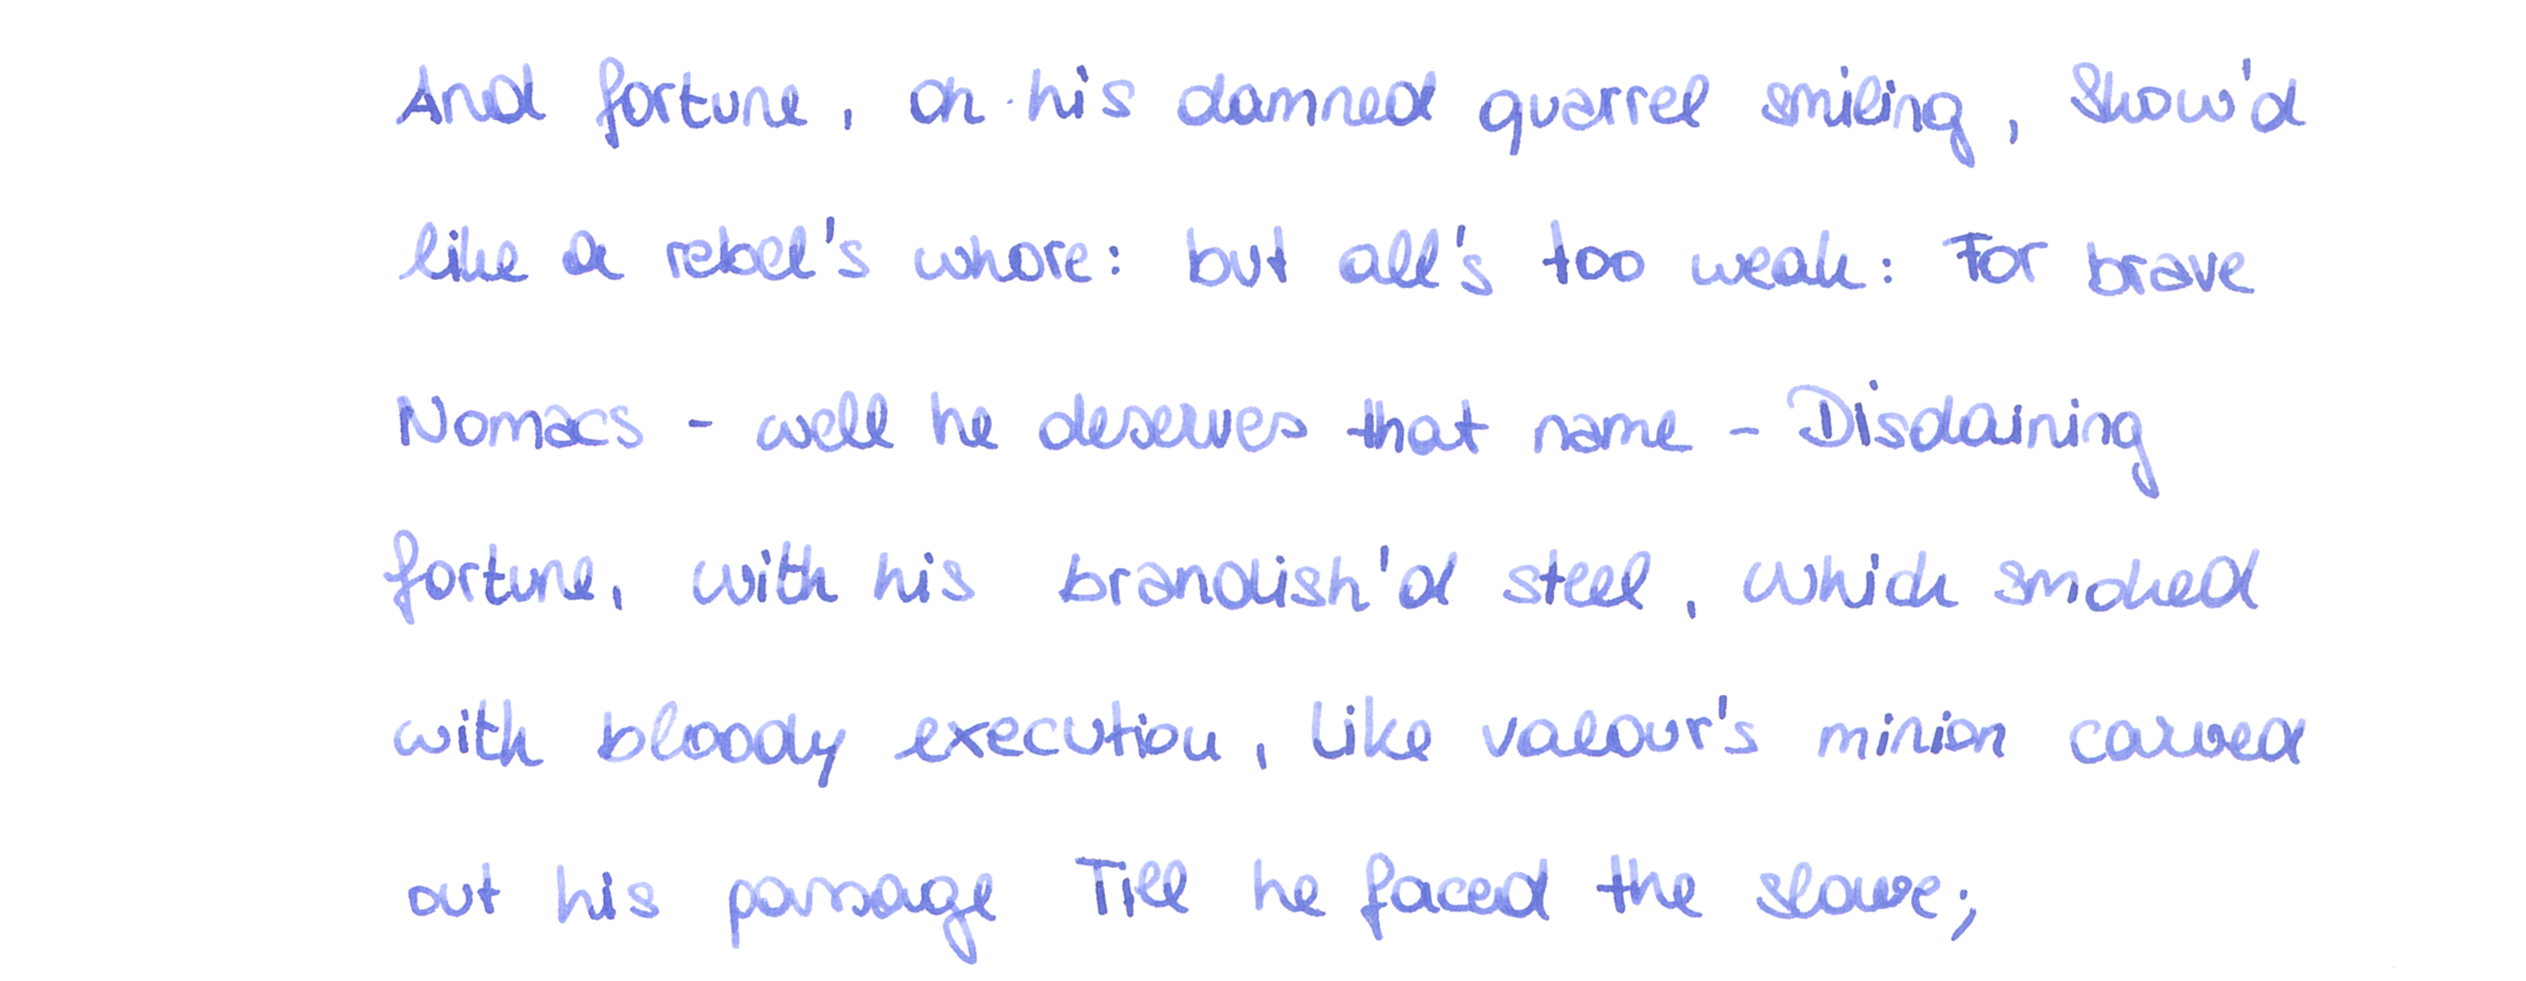 And fortune, on his damned quarrel smiling, Show'd
like a rebel's whore: but all's too weak: For brave
Nomacs - well he deserves that name - Disdaining
fortune, with his brandish'd steel, which smoked
with bloody execution, Like valour's minion carved
out his passage Till he faced the slave;